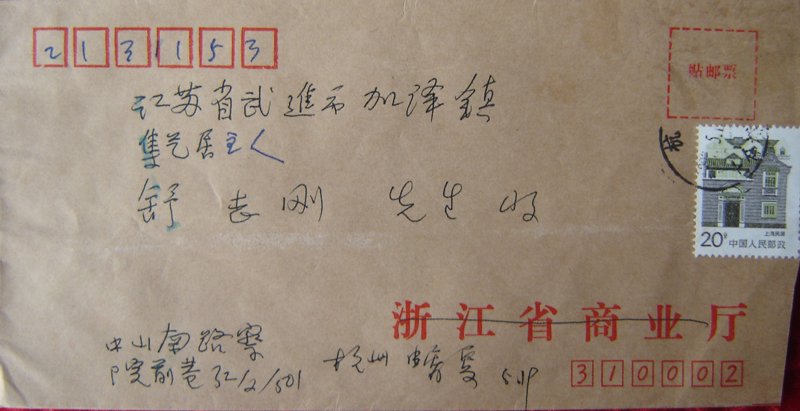 213153
贴邮票
江苏省武進市加泽镇
集艺居主人
舒志刚 先生 收
杭
上海民居
20分 中国人民邮政
浙江省商业厅
中山南路察
院前巷32/2/501 杭州
310002